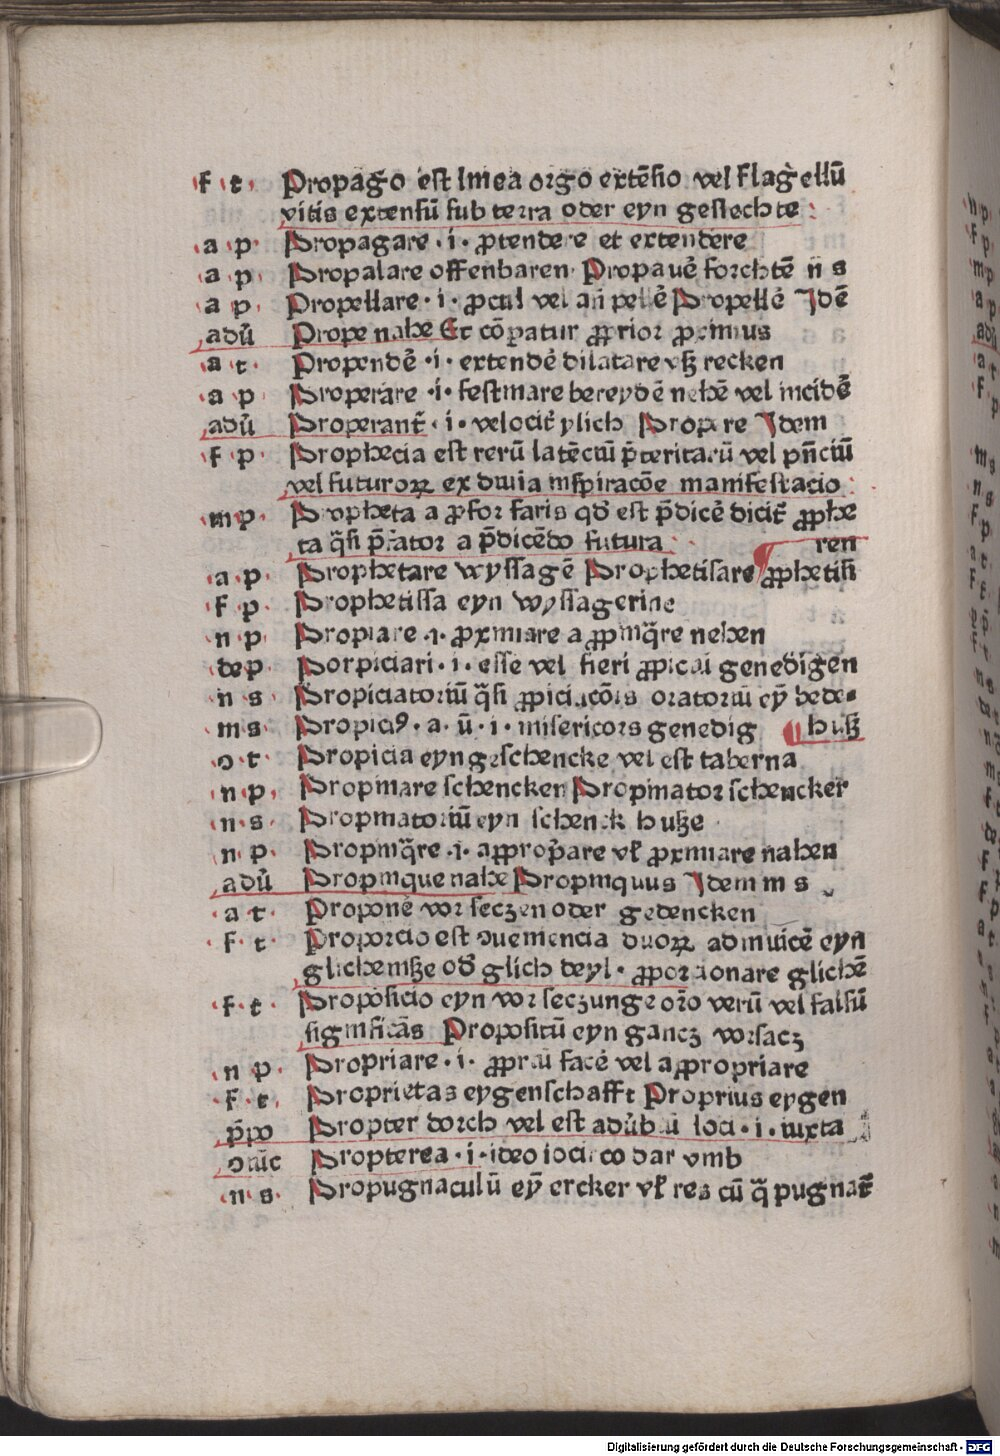 f t Propago est linea origo extēsio vel flagellū
vitis extensū sub terra oder eyn geslechte
a p Propagare · i · ꝓtendere et extendere
a p Propalare offenbaren Propauē forchtē n s
a p Propellare · i · ꝓcul vel an pellē Propellē Idē
adū Prope nahe Et cōpatur ꝓprior ꝓximus
a t Propendē · i · extendē dilatare vß recken
a p Properare · i · festinare bereydē nehē vel incidē
adū Properanť · i · velociť ylich Propere Idem
f p Prophecia est rerū latēciū p̄teritarū vel pn̄ciū
vel futuroꝝ ex diuia inspiracōe manifestacio
m p Propheta a ꝓfor faris qd̄ est p̄dicē diciť ꝓphe
ta q̄si p̄fator a p̄dicēdo futura ren
a p Prophetare wyssagē Prophetisare ꝓphetisi
f p Prophetissa eyn wyssagerine
n p Propiare · i · ꝓximare a ꝓpinq̄re nehen
de p Porpiciari · i · esse vel fieri ꝓpiciū genedigen
n s Propiciatoriū q̄si ꝓpiciacōis oratoriū eȳ bede
m s Propiciꝰ · a · ū · i · misericors genedig huß
ɔ t Propicia eyn geschencke vel est taberna
n p Propinare schencken Propinator schencker
n s Propinatoriū eyn schenck huße
n p Propinq̄re · i · apꝓpare vł ꝓximare nahen
adū Propinque nahe Propinquus Idem m s
a t Proponē vor seczen oder gedencken
f t Proporcio est ɔueniencia duoꝝ adinuicē eyn
glichenße od̄ glich deyl · ꝓporcionare glichē
f t Proposicio eyn vor seczunge or̄o verū vel falsū
significās Propositū eyn gancz vorsacz
n p Propriare · i · ꝓpriū facē vel a ꝓpropriare
f t Proprietas eygenschafft Proprius eygen
p̄po Propter dorch vel est adūbiū loci · i · iuxta
ɔiūc Propterea · i · ideo iocirco dar vmb
n s Propugnaculū eȳ ercker vł res cū q̄ pugnať
Digitalisierung gefördert durch die Deutsche Forschungsgemeinschaft - DFG